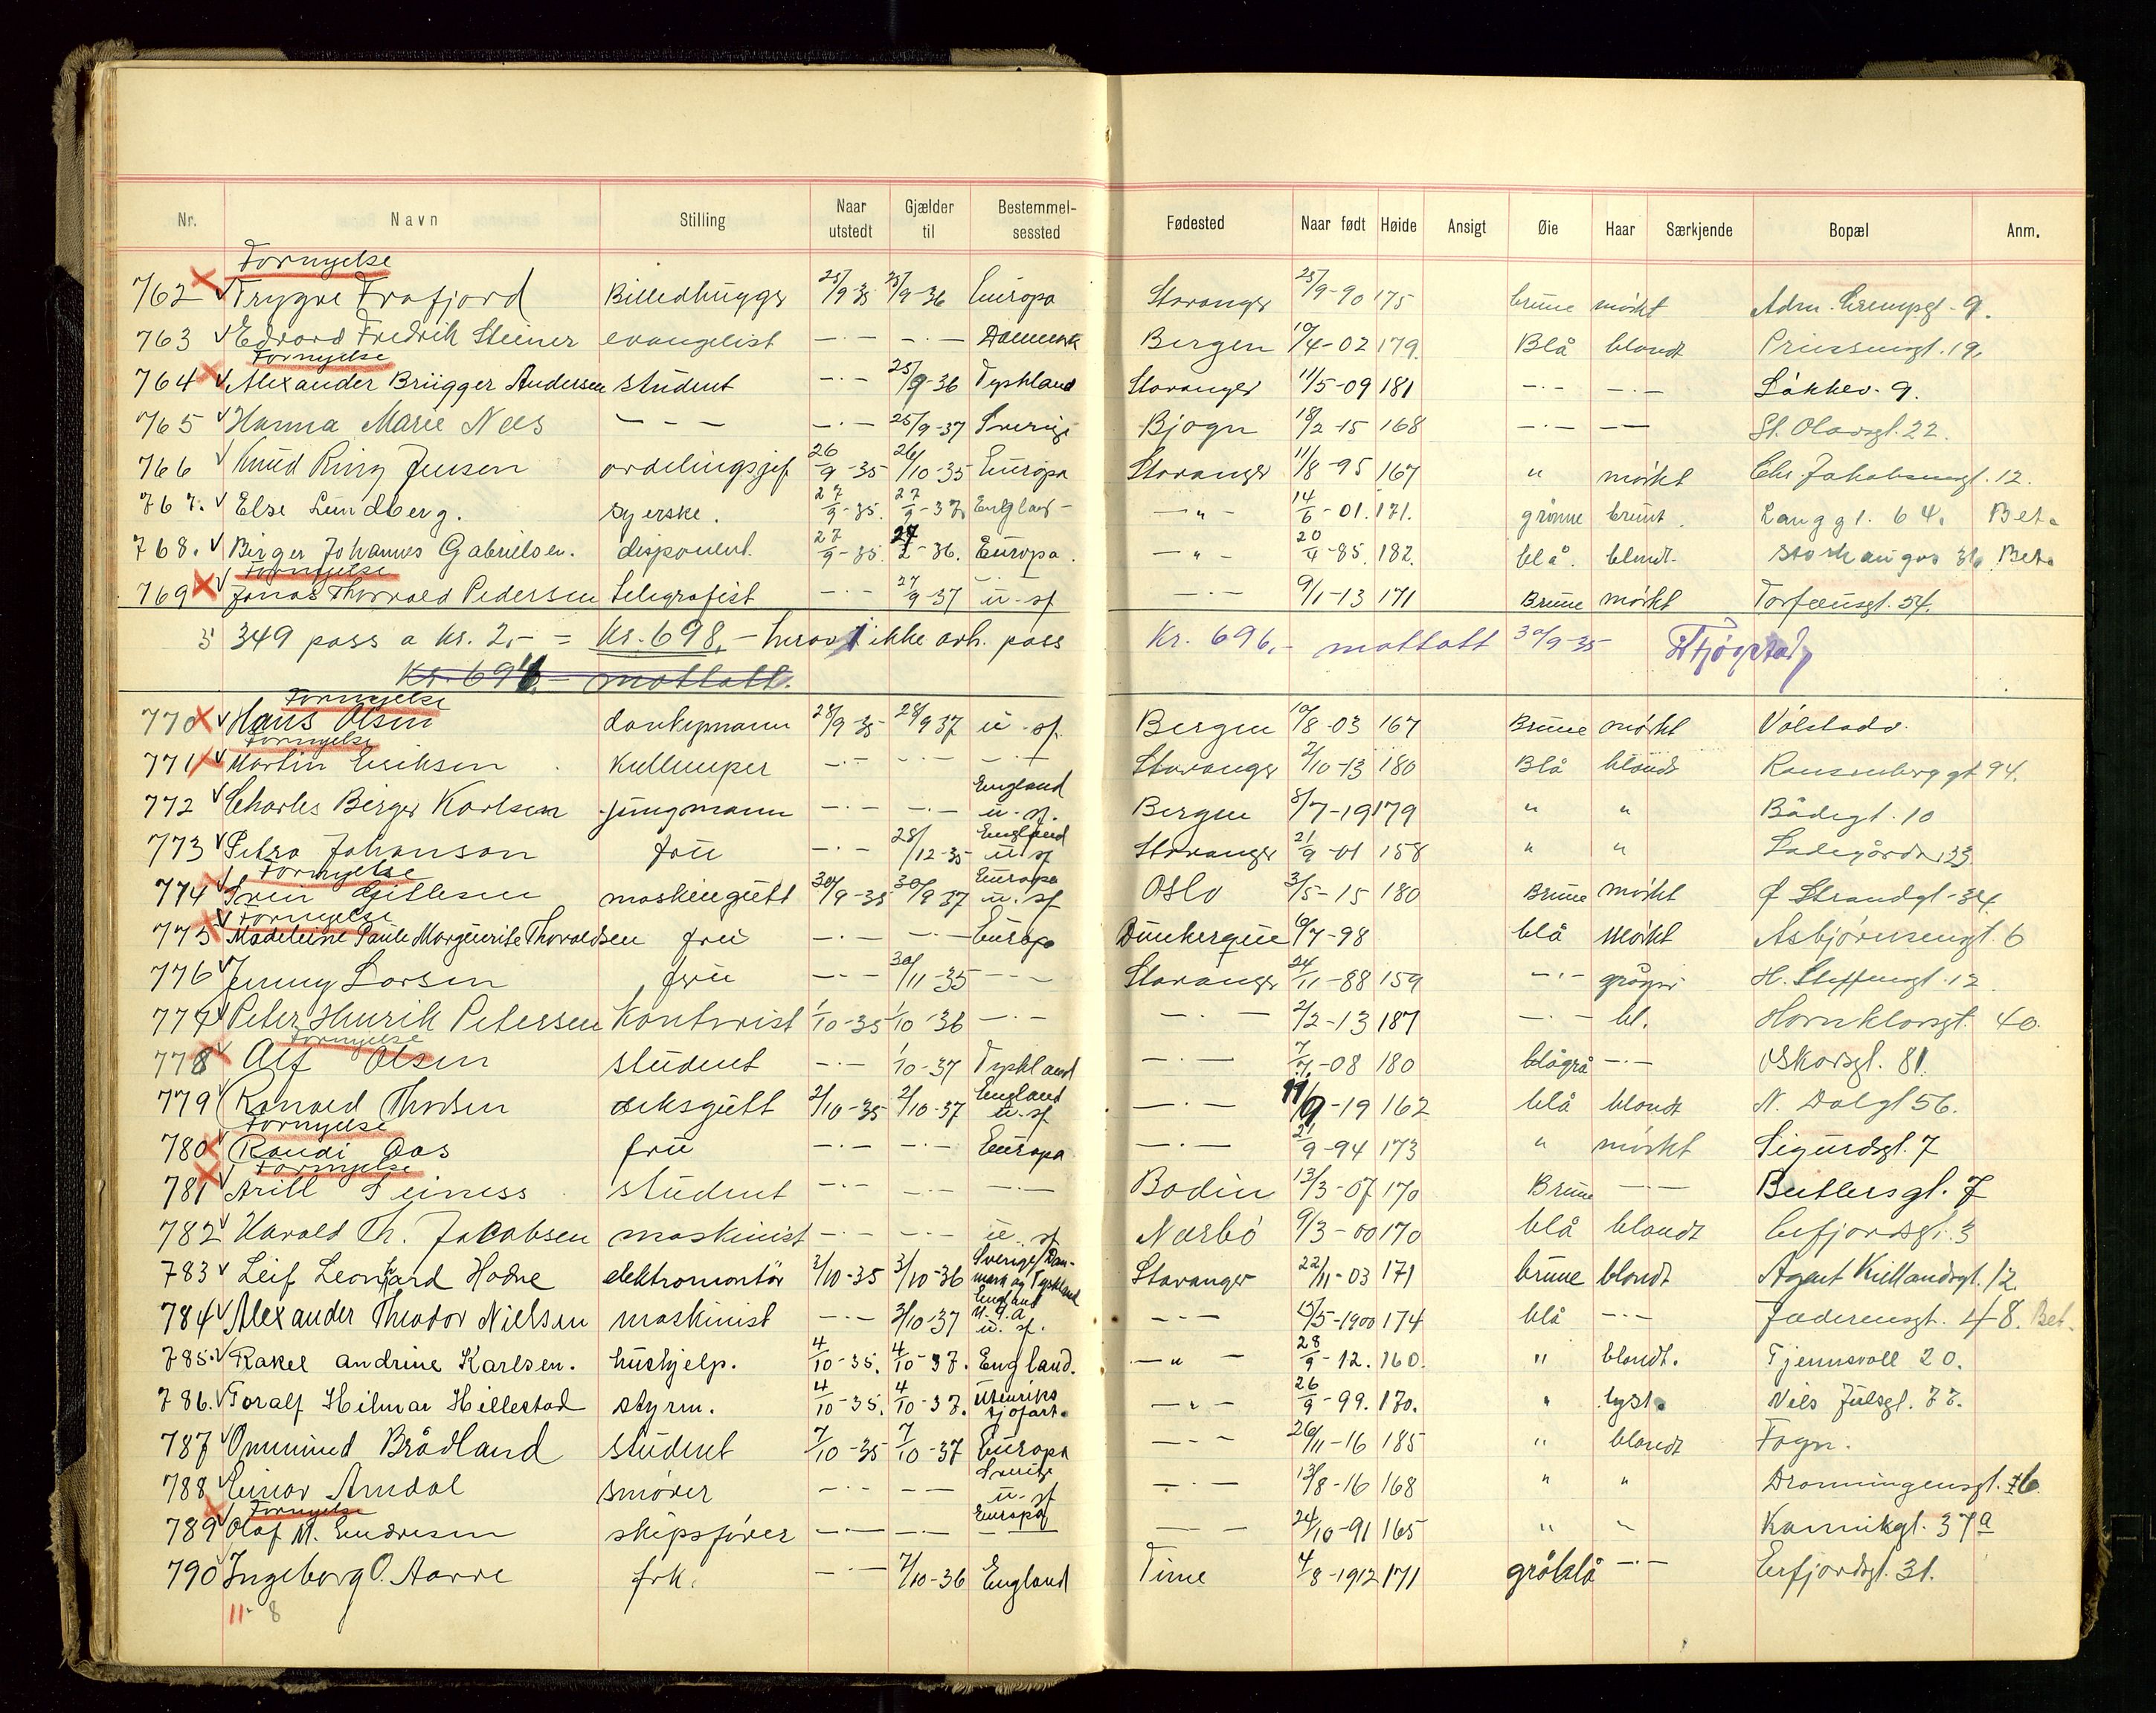 Nr. Navn Stilling Naar utstedt Gjælder til Bestemmelsessted Fødested Naar født Høide Ansigt Øie Haar Særkjende Bopæl Anm.
Fornyelse
762 Trygve Frafjord Billedhugger 25/9-35 25/9-36 Europa Stavanger 25/9-90 175 brune mörkt 9.
763 Edvard Fredrik Steiner evangelist -·- -·- Danmark Bergen 10/4-02 179 Blå blondt 19.
Fornyelse
764 Alexander Brügger Andersen student -·- 25/9-36 Tyskland Stavanger 11/5-09 181 -·- -·- Løkkev. 9.
765 Hanna Marie Nees - - - -·- 25/9-37 Sverige 18/2-15 168 -·- -- St. Olavsgt. 22.
766 Knud Ring Jensen avdelingsjef 26/9-35 26/10-35 Europa Stavanger 11/8-95 167 " mörkt Chr. Jakobsensgt. 12.
767. Else Lundberg. syerske. 27/9-35. 27/9-37. England - -"- 14/6-01. 171. grönne brunt. Langgt. 64. Bet.
768. Birger Johannes Gabrielsen. disponent. 27/9-35. 27/2-36. Europa. -"- 20/4-85. 182. blå. blondt. Storhaugv 36. Bet.
Fornyelse
769 Jonas Thorvald Pedersen telegrafist -·- 27/9-37 u-sf -·- 9/1-13 171 Brune mörkt Torfæusgt. 54.
349 pass a kr. 2,- = Kr. 698,- herav 1 ikke avh. pass Kr. 696,- mottatt 30/9-35
Kr. 696.- mottatt.
Fornyelse
770 Hans Olsen donkeymann 28/9-35 28/9 37 u-sf. Bergen 10/8-03 167 Brune mörkt Vålandsv.
Fornyelse
771 Martin Eriksen Kullemper -·- -·- -·- Stavanger 2/10-13 180 Blå blondt Rosenberggt 94.
772 Charles Birger Karlsen jungmann -·- -·- England u-sf. Bergen 8/7-19 179 " " Bådegt. 10
773 Petra Johanson frü -·- 28/12-35 England u-sf Stavanger 21/9-01 158 " " Ladegårdsv 23
Fornyelse
774 Svein Gillesen maskingutt 30/9-35 30/9 37 Europa u.sf Oslo 3/5-15 180 Brune mörkt Ø Strandgt-34.
Fornyelse
775 Madeleine Paule Marguerite Thoraldsen frü -·- -·- Europa Dunkerque 6/7-98 blå mörkt Asbjörnsensgt. 6
776 Jenny Larsen frü -·- 30/11-35 -·- Stavanger 24/11-88 159 -·- H. Steffensgt. 12
777 Peter Henrik Petersen Kontorist 1/10-35 1/10-36 -·- -·- 2/2-13 187 -·- bl. Hornklovsgt. 40.
Fornyelse
778 Alf Olsen student -·- 1/10-37 Tyskland -·- 7/7-08 180 blågrå -·- Oskarsgt. 81.
779 Ranvald Thorsen deksgutt 2/10-35 2/10-37 England u.sf -·- 11/9-19 162 blå blondt N. Dalgt 56.
Fornyelse
780 Randi Aas frü -·- -·- Europa -·- 21/9-94 173 " mörkt Sigurdsgt. 7
Fornyelse
781 Arild Seiness student -·- -·- -·- Bodin 13/3-07 170 Brune -·- Butlersgt. 7
782 Harald Th. Jacobsen maskinist -·- -·- u. sf Nærbö 9/3-00 170 blå blondt Erfjordsgt. 3
783 Leif Leonhard Hodne elektromontör 3/10-35 3/10-36 Sverige/Danmark og Tyskland Stavanger 22/11-03 171 brune blondt Agent Kiellandsgt. 12
784 Alexander Theodor Nielsen maskinist -·- 3/10-37 England U.S.A u. sf. -·- 15/5-1900 174 blå -·- Jæderensgt. 48. Bet.
785. Rakel Andrine Karlsen. hushjelp. 4/10-35. 4/10-37. England. -"- 28/9-12. 160. " blondt. Tjensvoll 20.
786. Toralf Hilmar Hillestad styrm. 4/10-35. 4/10-37. Utenriks sjøfart. -"- 26/9-99. 170. " lyst. Nils Juelsgt. 77.
787 Ommund Brådland student 7/10-35 7/10-37 Europa -·- 26/11-16 185 " blondt Fogn.
788 Einar Årndal smører -·- -- Sverige u-sf -·- 13/8-16 168 " " Dronningensgt. 76.
Fornyelse
789 Olaf M. Endresen skipsfører -·- -·- Europa -·- 24/10-91 165 " " Kannikgt. 37a
790 Ingeborg O. Aarre frk. -·- 7/10-36 England Time 4/8-1912 171 gråblå -·- Erfjordsgt. 31.
11- 8